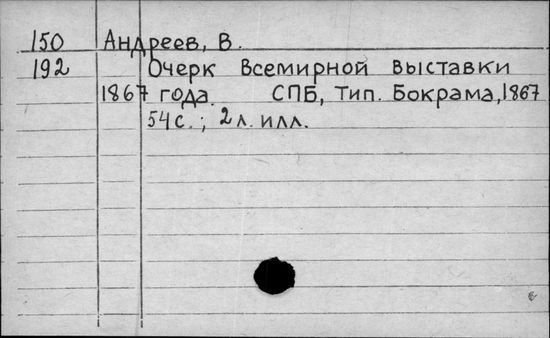 150 Андреев, В.
192 Очерк Всемирной выставки
1867 года. СПБ, тип. Бокрама, 1867
54 с.; 2 л. илл.